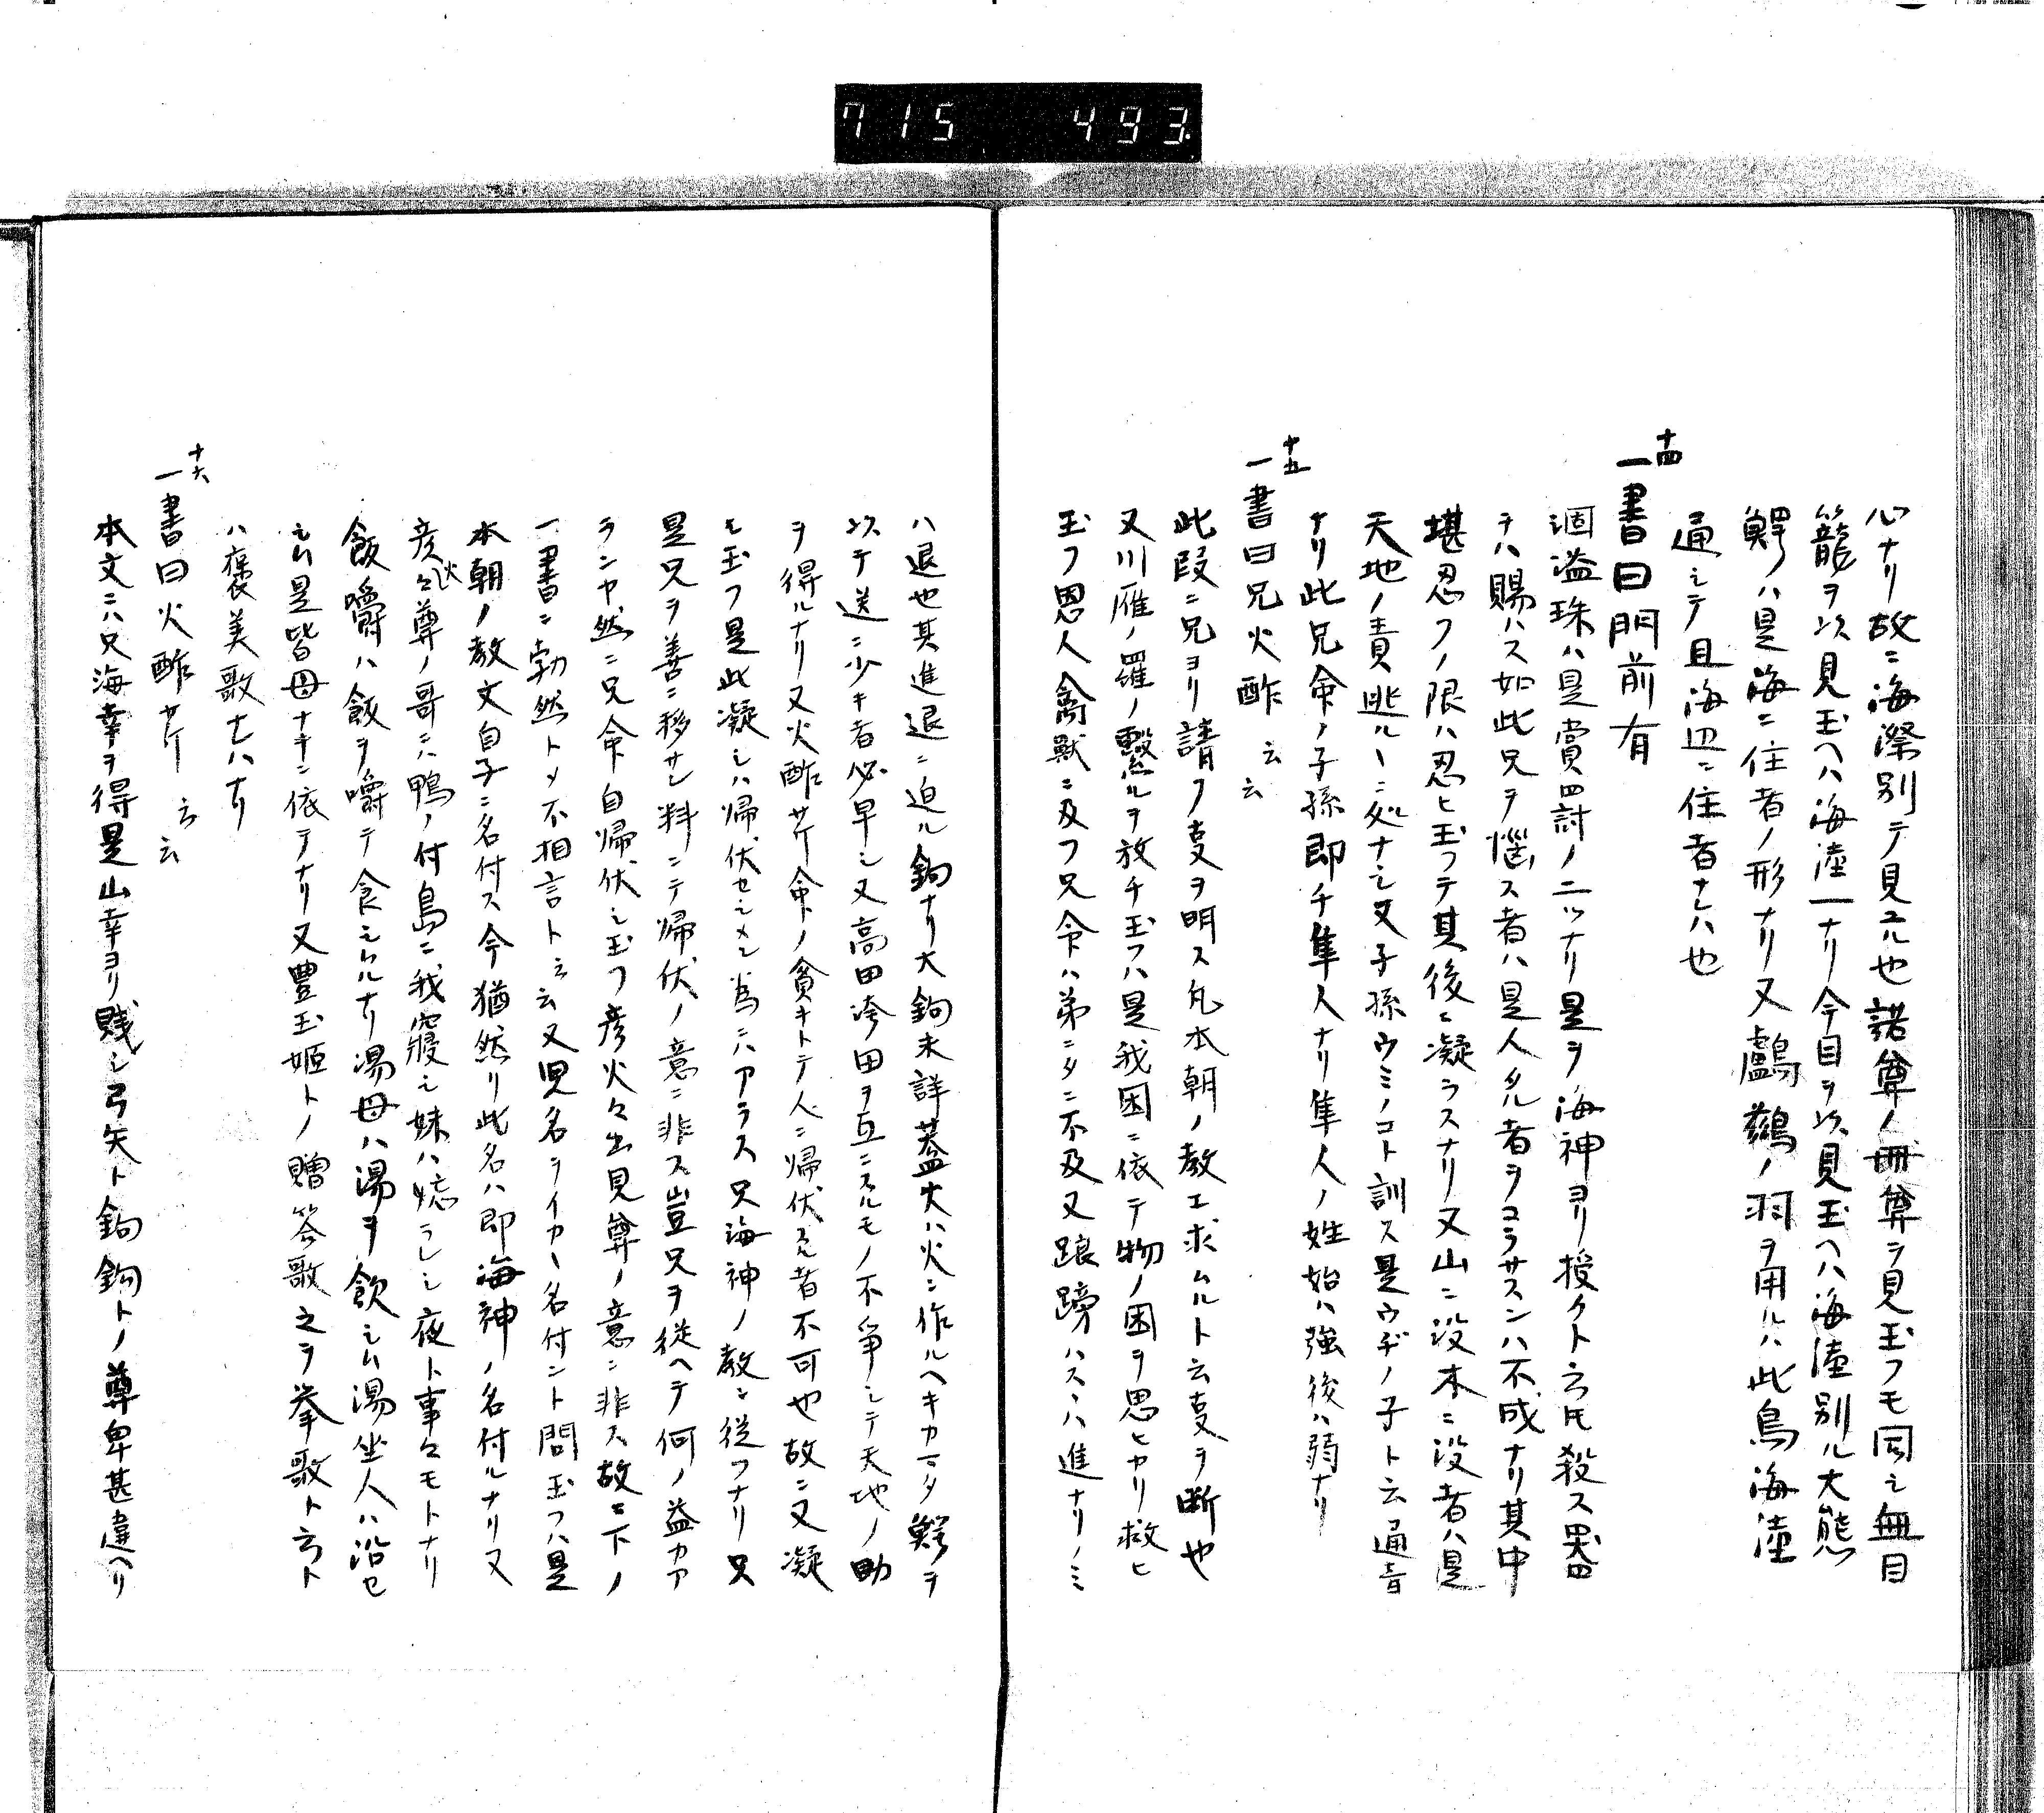 715 493
心ナリ故ニ海際別テ見ユル也諾尊ノ冊尊ヲ見玉フモ同シ無目
籠ヲ以見玉ヘハ海陸一ナリ今目ヲ以見玉ヘハ海陸別ル大熊
鰐ハ是海ニ住者ノ形ナリ又鸕鷀ノ羽ヲ用ルハ此鳥海陸
通シテ且海辺ニ住者ナレハ也
十四
一書曰門前有
涸溢珠ハ是賞罰ノ二ツナリ是ヲ海神ヨリ授クト云トモ殺ス器
テハ賜ハス如此兄ヲ悩ス者ハ是人タル者ヲコラサスンハ不成ナリ其中
堪忍フノ限ハ忍ヒ玉フテ其後ニ凝ラスナリ又山ニ没木ニ没者ハ是
天地ノ責逃ルヽニ処ナシ又子孫ウミノコト訓ス是ウヂノ子ト云通音
ナリ此兄命ノ子孫即チ隼人ナリ隼人ノ姓始ハ強後ハ弱ナリ
十五
一書曰兄火酢云云
此段ニ兄ヨリ請フ事ヲ明ス凡本朝ノ教エ求ムルト云事ヲ断也
又川雁ノ羅ノ繋ルヲ放チ玉フハ是我困ニ依テ物ノ困ヲ思ヒヤリ救ヒ
玉フ恩人禽獣ニ及フ兄命ハ弟ニタニ不及又踉蹡ハスヽハ進ナリノミ
ハ退也其進退ニ迫ル鉤ナリ大鉤未詳蓋大ハ火ニ作ルヘキカマタ鰐ヲ
以テ送ニ少キ者必早シ又高田洿田ヲ互ニスルモノ不争シテ天地ノ助
ヲ得ルナリ又火酢芹命ノ貧キトテ人ニ帰伏スル者不可也故ニ又凝
シ玉フ是此凝シハ帰伏セシメン為ニハアラス只海神ノ教ニ従フナリ只
是兄ヲ善ニ移サン料ニテ帰伏ノ意ニ非ス豈兄ヲ従ヘテ何ノ益カア
ランヤ然ニ兄命自帰伏シ玉フ彦火々出見尊ノ意ニ非ス故ニ下ノ
一書ニ勃然トメ不相言ト云云又児名ヲイカヽ名付ント問玉フハ是
本朝ノ教文自子ニ名付ス今猶然リ此名ハ即海神ノ名付ルナリ又
彦火々尊ノ哥ニハ鴨ノ付島ニ我寝シ妹ハ忘ラレシ夜ト事々モトナリ
飯嚼ハ飯ヲ嚼テ食シムルナリ湯母ハ湯ヲ飲シム湯坐人ハ浴セ
シム是皆母ナキニ依テナリ又豊玉姫トノ贈答歌之ヲ挙歌ト云ト
ハ褒美歌ナレハナリ
十六
一書曰火酢芹云云
本文ニハ只海幸ヲ得是山幸ヨリ賎シ弓矢ト鉤鉤トノ尊卑甚違ヘリ